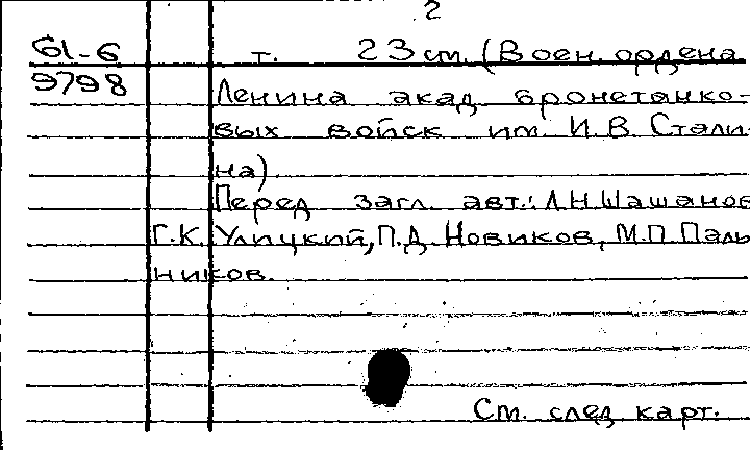 2
61-6 т. 23 см. (Воен. ордена
9798 Ленина акад. бронетанко-
вых войск им. И.В. Стали-
на).
Перед загл. авт.: Л.Н. Шашанов
Г.К. Улицкий, П.Д. Новиков, М.П. Паль
ников.
См. след. карт.